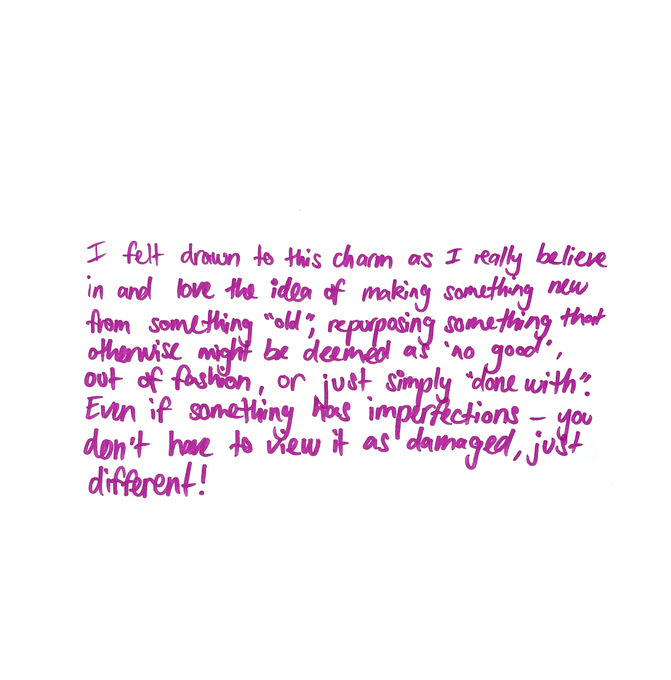 I felt drawn to this charm as I really believe
in and love the idea of making something new
from something "old", repurposing something that
otherwise might be deemed as 'no good',
out of fashion, or just simply "done with".
Even if something has imperfections - you
don't have to view it as damaged, just
different!